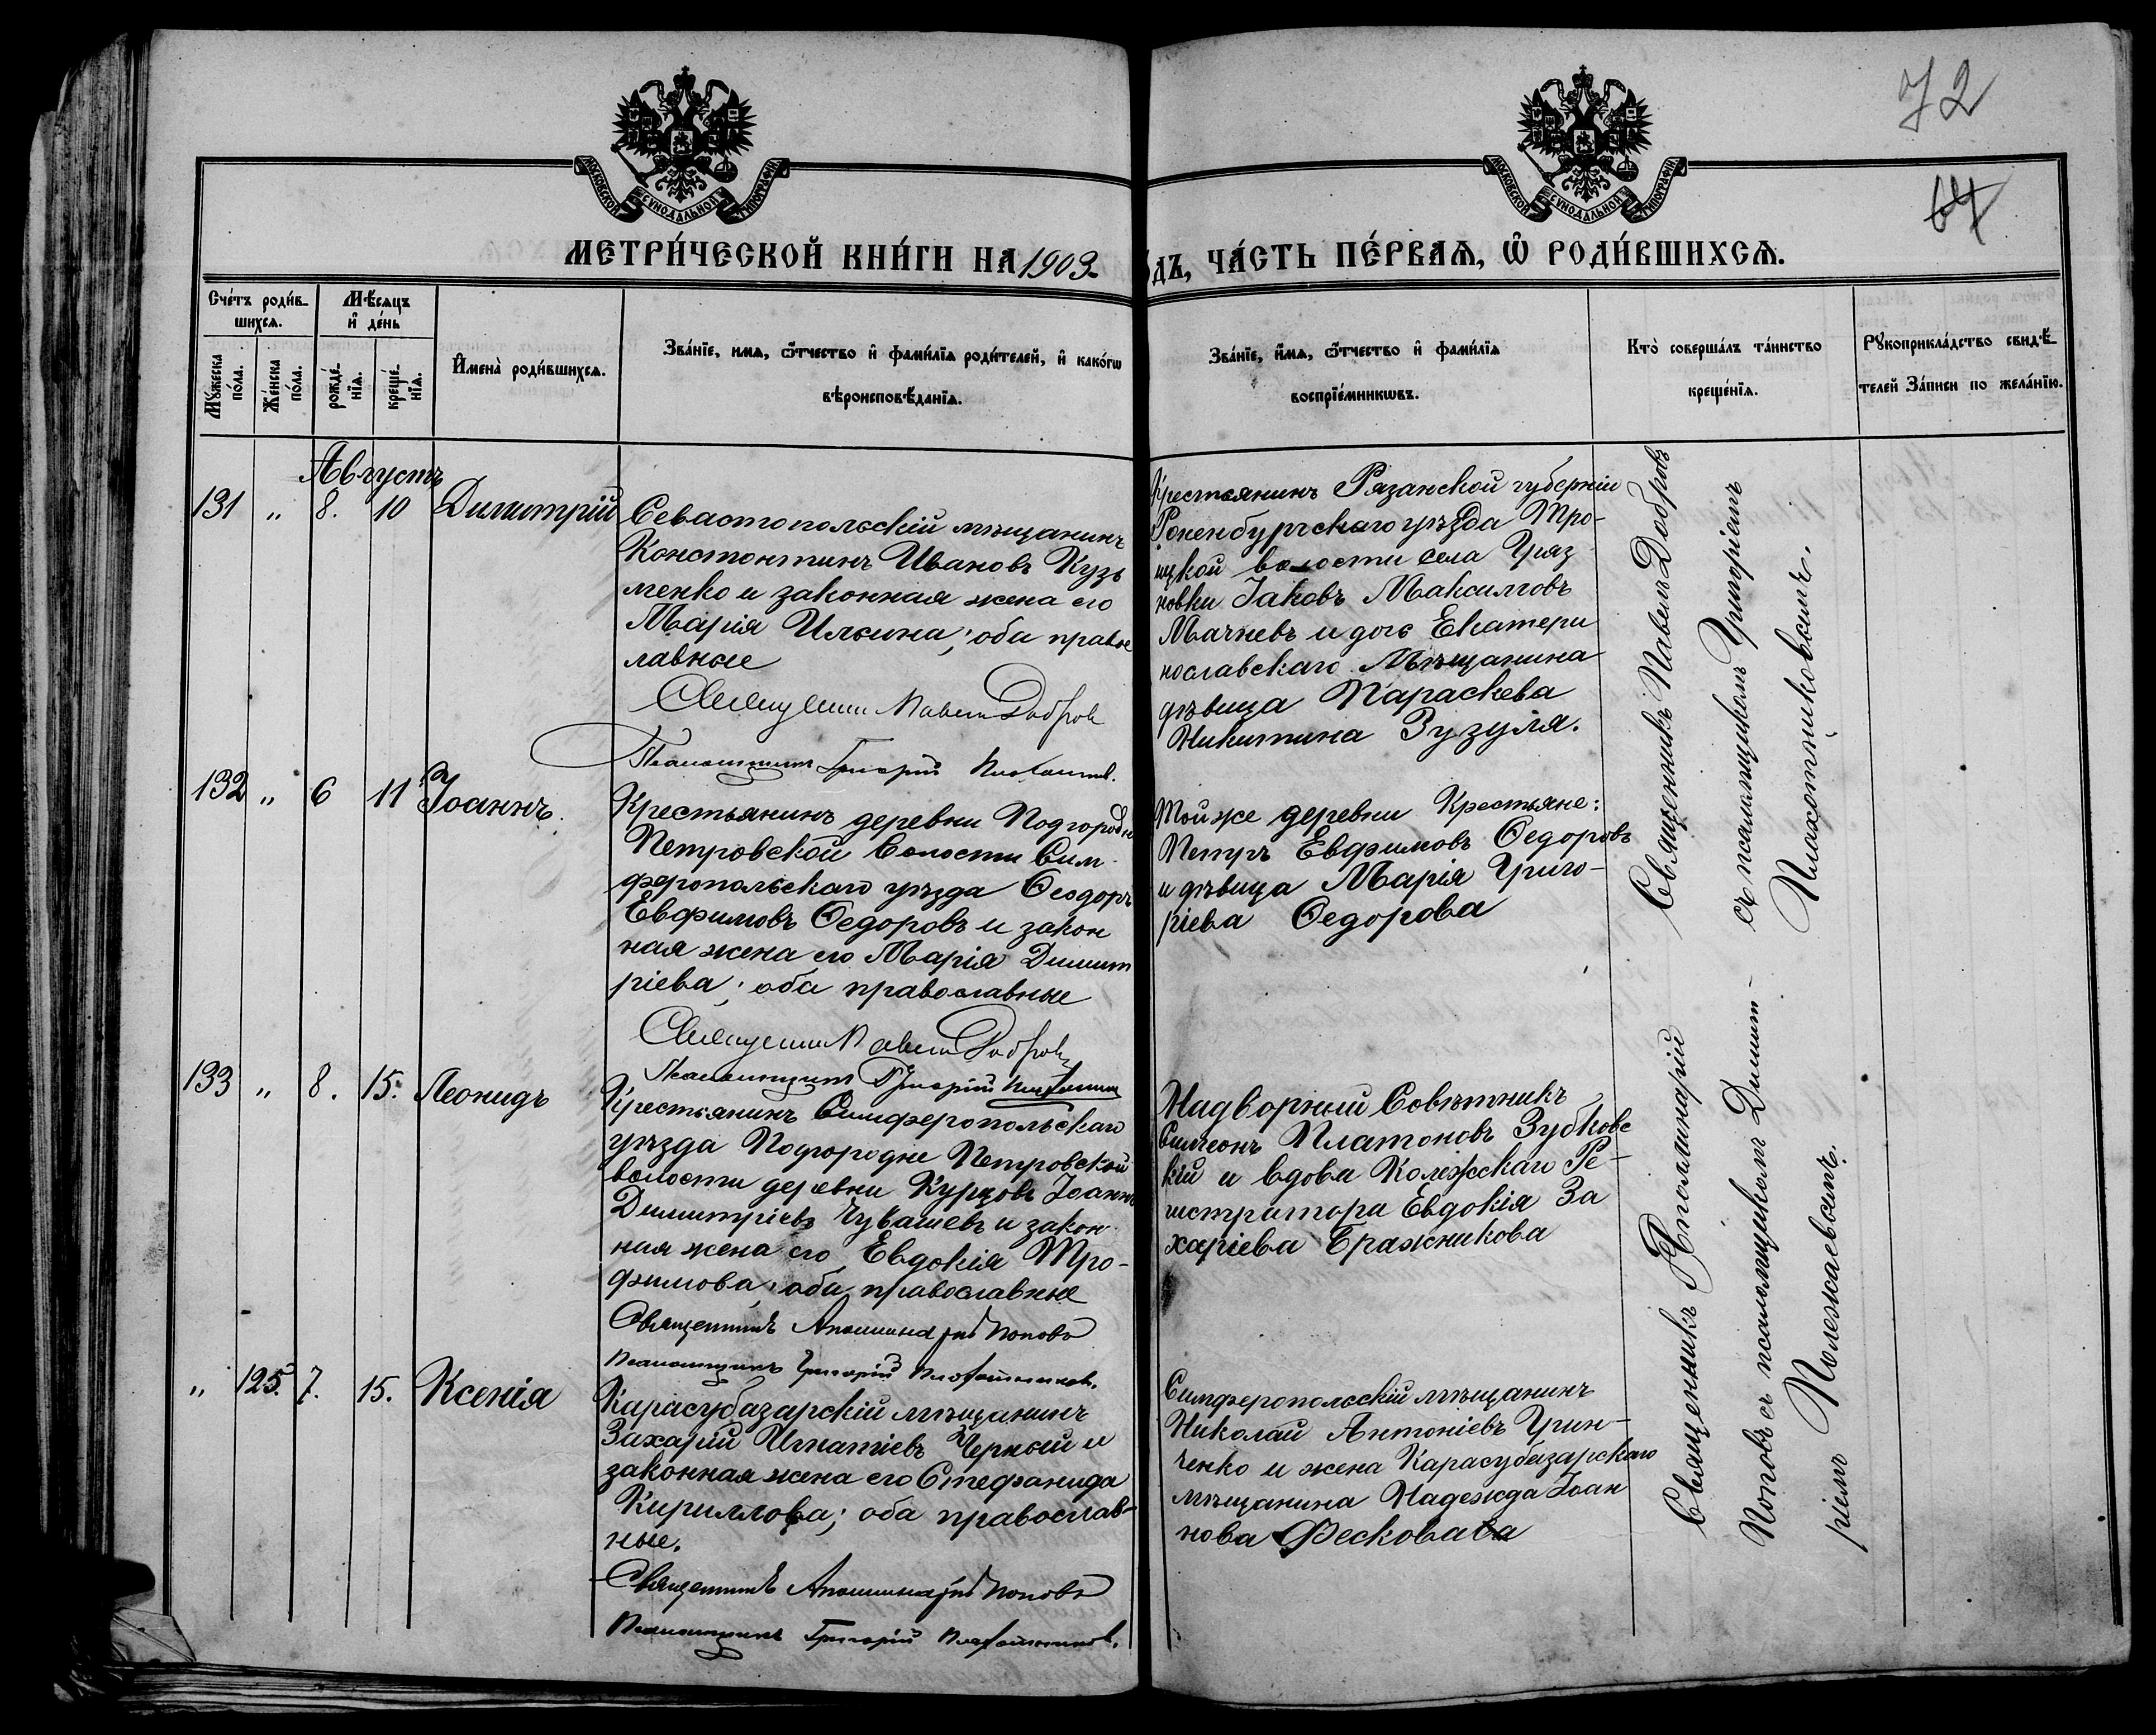 72
64
МОСКОВСКОЙ СѴНОДАЛЬНОЙ ТИПОГРАФІИ
МОСКОВСКОЙ СѴНОДАЛЬНОЙ ТИПОГРАФІИ
МЕТРИ́ЧЕСКОЙ КНИ́ГИ НА 1903
ДЪ, ЧА́СТЬ ПЕ́РВАѦ, Ѿ РОДИ́ВШИХСѦ.
Сче́тъ роди́в-
шихсѧ.
Мꙋ́жеска по́ла.
Же́нска по́ла.
Мѣ́сѧцъ
и҆ де́нь
рожде́-
нїѧ.
креще́-
нїѧ.
И҆мена̀ роди́вшихсѧ.
Зва́нїе, имѧ, ѻ҆́тчество и҆ фами́лїѧ роди́телей, и҆ како́гѡ
вѣроисповѣ́данїѧ.
Зва́нїе, и҆́мѧ, ѻ҆́тчество и҆ фами́лїѧ
воспрїе́мникѡвъ.
Кто̀ соверша́лъ та́инство
креще́нїѧ.
Рꙋкоприкла́дство свидѣ́-
телей за́писи по жела́нїю.
Августъ
131 " 8. 10 Димитрій
Севастопольскій мѣщанинъ
Константинъ Ивановъ Кузь
менко и законная жена его
Марія Ильина; оба правос
лавные
Священникъ Павелъ Добровъ
Псаломщикъ Григорій
Крестьянинъ Рязанской губерніи
Роненбургскаго уѣзда Тро-
ицкой волости села Гряз
новки Іаковъ Максимовъ
Мачневъ и дочь Екатери
нославскаго Мѣщанина
дѣвица Параскева
Никитина Зузуля.
Священникъ Павелъ Добровъ
съ псаломщикомъ Григоріемъ
Плахотниковымъ.
132 " 6 11 Іоаннъ.
Крестьянинъ деревни Подгородне
Петровской волости Сим-
феропольскаго уѣзда Ѳеодоръ
Евфимовъ Ѳедоровъ и закон
ная жена его Марія Димит
ріева; оба православные
Священникъ Павелъ Добровъ
Псаломщикъ Григорій
Той же деревни Крестьяне:
Петръ Евфимовъ Ѳедоровъ
и дѣвица Марія Григо-
ріева Ѳедорова
133 " 8. 15. Леонидъ
Крестьянинъ Симферопольскаго
уѣзда Подгородне Петровской
волости деревни Курцовъ Іоаннъ
Димитріевъ Чувашевъ и закон-
ная жена его Евдокія Тро-
фимова; оба православные
Священникъ Аполлинарій Поповъ
Псаломщикъ Григорій Плахотниковъ.
Надворный Совѣтникъ
Симеонъ Платоновъ Зубковс
кій и вдова Колежскаго Ре-
гистратора Евдокія За
харіева Бражникова
Священникъ Аполлинарій
Поповъ съ псаломщикомъ Димит-
ріемъ Полежаевымъ.
" 125. 7. 15. Ксенія
Карасубазарскій мѣщанинъ
Захарій Игнатіевъ Черный и
законная жена его Стефанида
Кириллова; оба православ-
ные.
Священникъ Аполлинарій Поповъ
Псаломщикъ Григорій Плахотниковъ.
Симферопольскій мѣщанинъ
Николай Антоніевъ Грин-
ченко и жена Карасубазарскаго
мѣщанина Надежда Іоан
нова Фескова